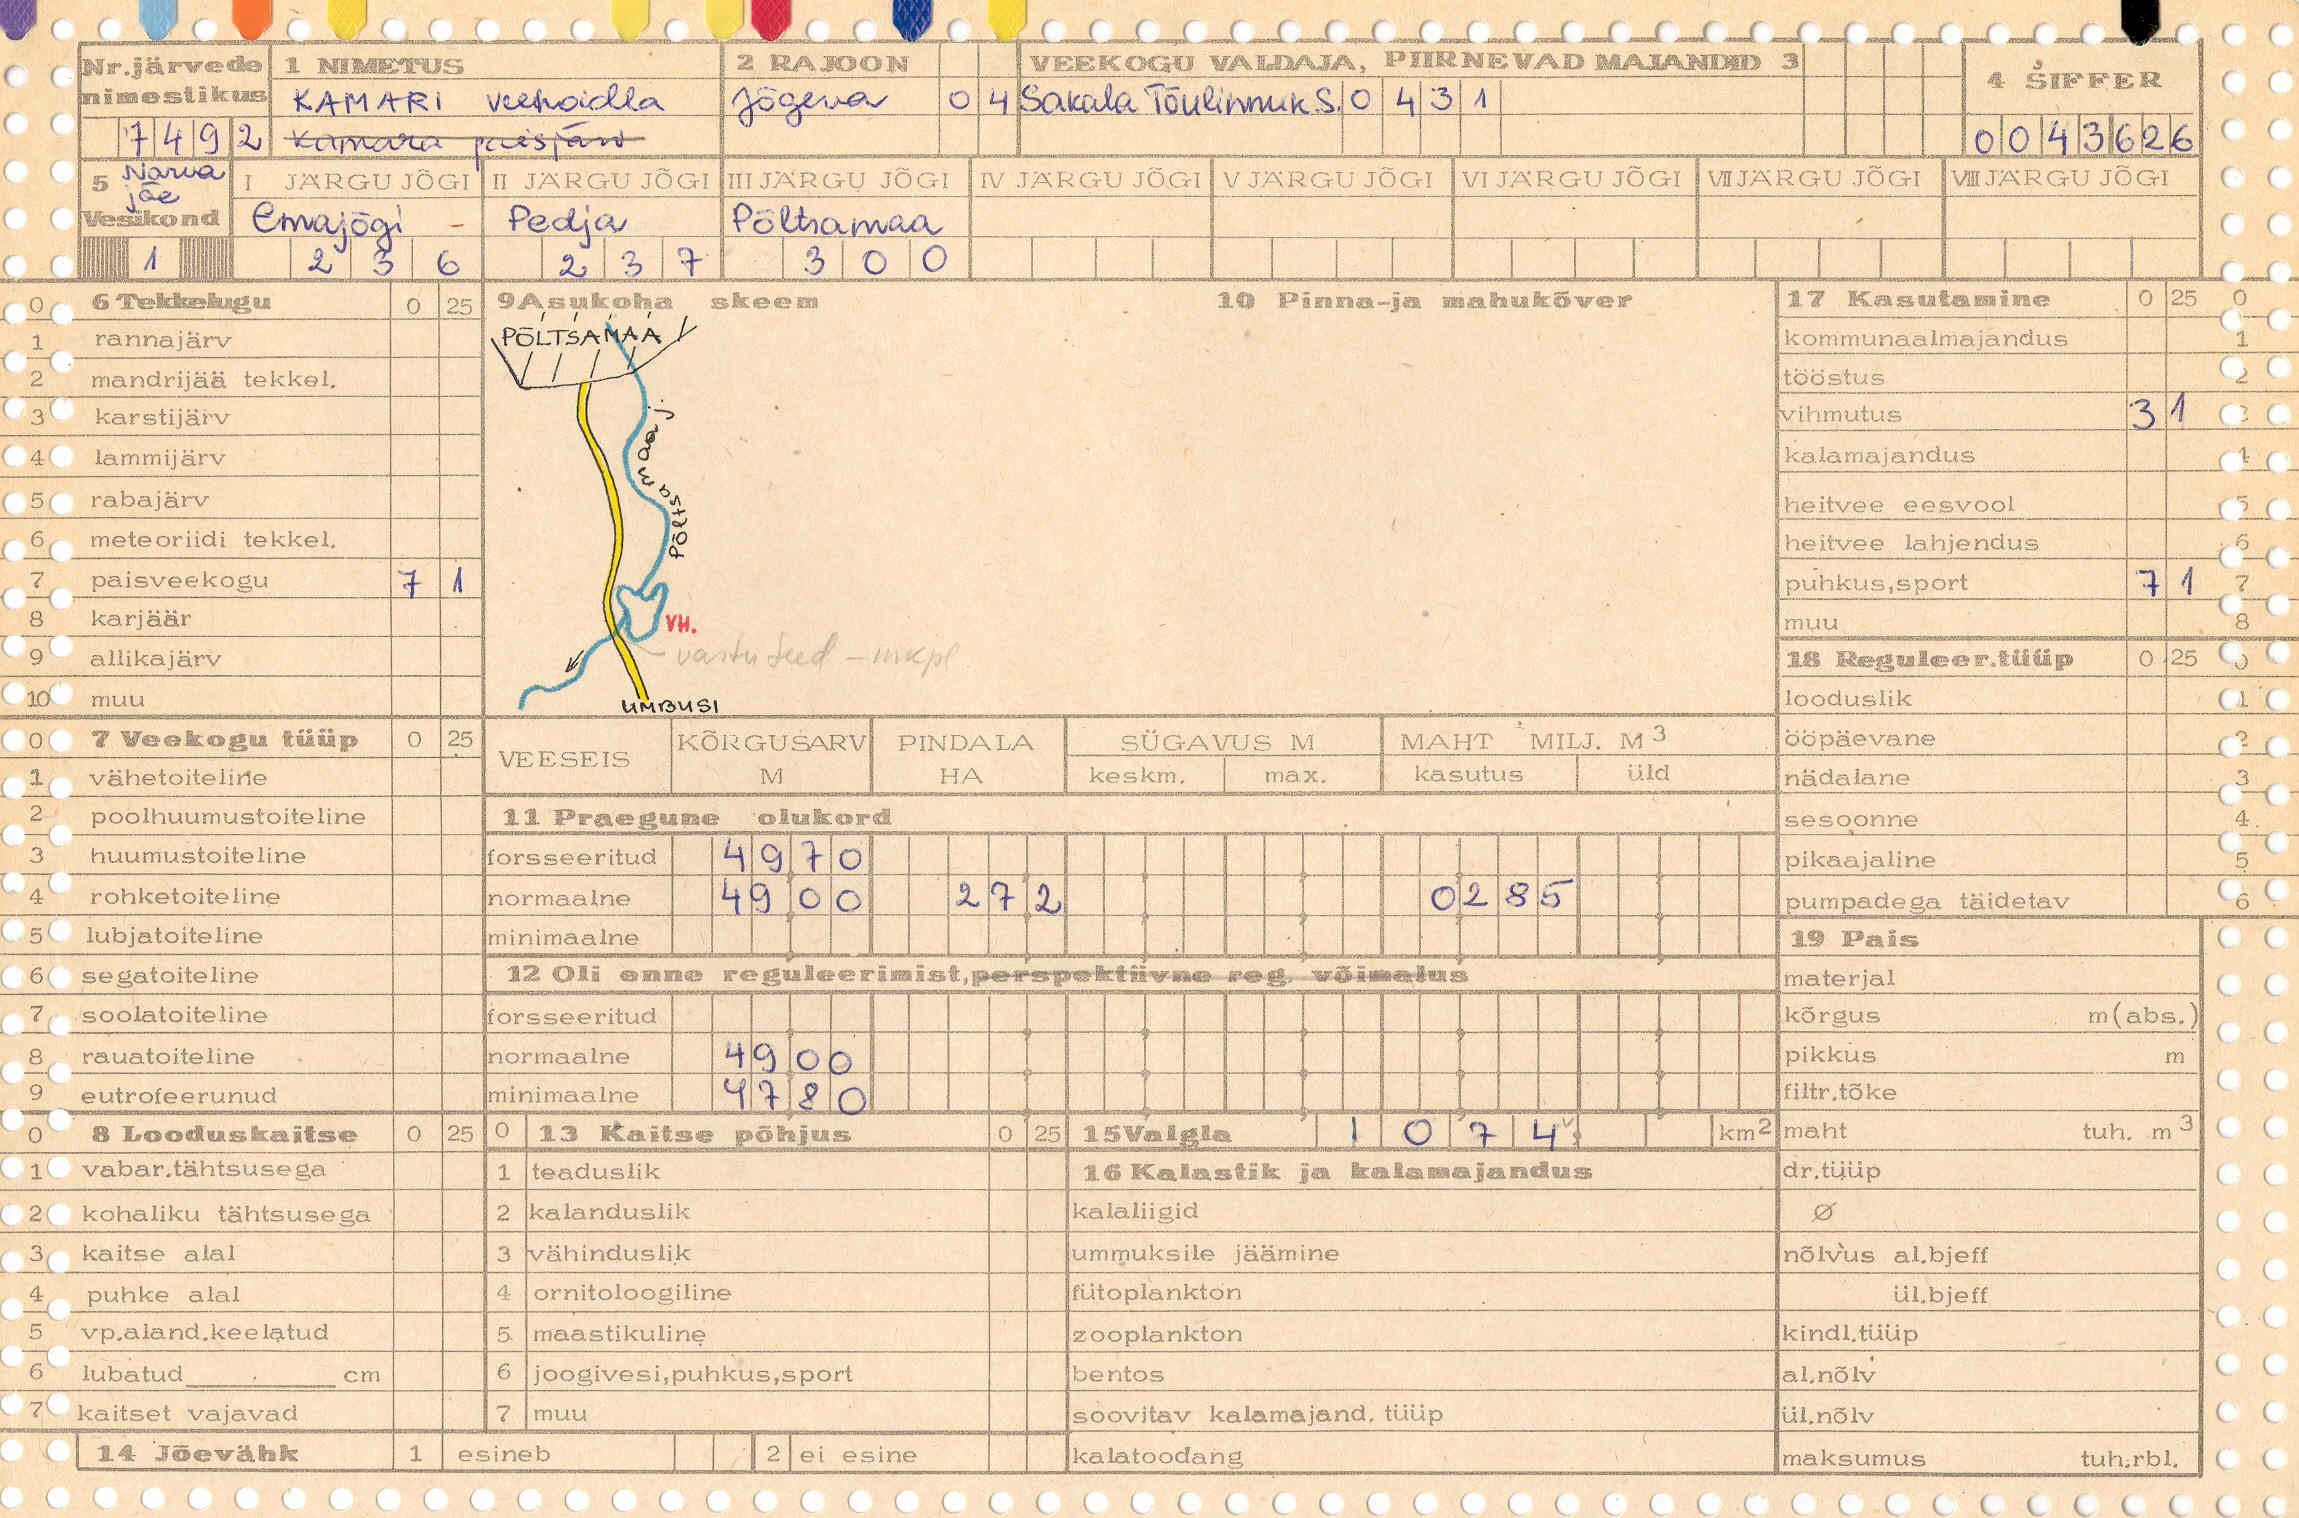 Nr.järvede nimestikus 7492
1 NIMETUS
KAMARI veehoidla
Kamara paisjärv
2 RAJOON
Jõgeva 04
VEEKOGU VALDAJA, PIIRNEVAD MAJANDID 3
Sakala Tõulinnuk.S. 0431
4 ŠIFFER
0043626
5 Narva jõe Vesikond 1
I JÄRGU JÕGI
Emajõgi - 236
II JÄRGU JÕGI
Pedja 237
III JÄRGU JÕGI
Põltsamaa 300
IV JÄRGU JÕGI
V JÄRGU JÕGI
VI JÄRGU JÕGI
VII JÄRGU JÕGI
VIII JÄRGU JÕGI
0 6 Tekkelugu 0 25
1 rannajärv
2 mandrijää tekkel.
3 karstijärv
4 lammijärv
5 rabajärv
6 meteoriidi tekkel.
7 paisveekogu 7 1
8 karjäär
9 allikajärv
10 muu
0 7 Veekogu tüüp 0 25
1 vähetoiteline
2 poolhuumustoiteline
3 huumustoiteline
4 rohketoiteline
5 lubjatoiteline
6 segatoiteline
7 soolatoiteline
8 rauatoiteline
9 eutrofeerunud
0 8 Looduskaitse 0 25
1 vabar.tähtsusega
2 kohaliku tähtsusega
3 kaitse alal
4 puhke alal
5 vp.aland.keelatud
6 lubatud cm
7 kaitset vajavad
9 Asukoha skeem
PÕLTSAMAA
Põltsamaa j.
VH.
UMBUSI
10 Pinna-ja mahukõver
VEESEIS
KÕRGUSARV M
PINDALA HA
SÜGAVUS M
keskm. max.
MAHT MILJ. M3
kasutus üld
11 Praegune olukord
forsseeritud 4970
normaalne 4900 272 0285
minimaalne
12 Oli enne reguleerimist,perspektiivne reg. võimalus
forsseeritud
normaalne 4900
minimaalne 4780
0 13 Kaitse põhjus 0 25
1 teaduslik
2 kalanduslik
3 vähinduslik
4 ornitoloogiline
5 maastikuline
6 joogivesi,puhkus,sport
7 muu
14 Jõevähk 1 esineb 2 ei esine
15 Valgla 1074 km2
16 Kalastik ja kalamajandus
kalaliigid
ummuksile jäämine
fütoplankton
zooplankton
bentos
soovitav kalamajand. tüüp
kalatoodang
17 Kasutamine 0 25 0
kommunaalmajandus 1
tööstus 2
vihmutus 3 1 3
kalamajandus 4
heitvee eesvool 5
heitvee lahjendus 6
puhkus,sport 7 1 7
muu 8
18 Reguleer.tüüp 0 25 0
looduslik 1
ööpäevane 2
nädalane 3
sesoonne 4
pikaajaline 5
pumpadega täidetav 6
19 Pais
materjal
kõrgus m(abs.)
pikkus m
filtr.tõke
maht tuh. m3
dr.tüüp
Ø
nõlvus al.bjeff
ül.bjeff
kindl.tüüp
al.nõlv
ül.nõlv
maksumus tuh.rbl.